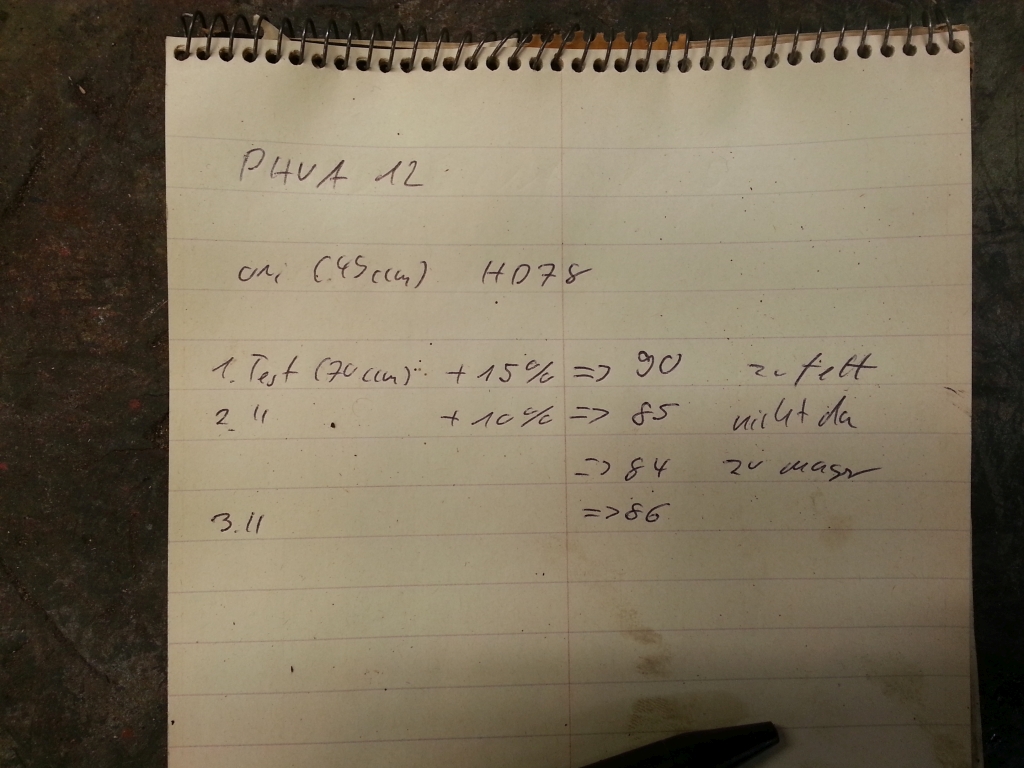 PHVA 12
ori (45ccm) HD78
1. Test (70ccm) +15% => 90 zu fett
2. " +10% => 85 nicht da
=> 84 zu mager
3. " => 86